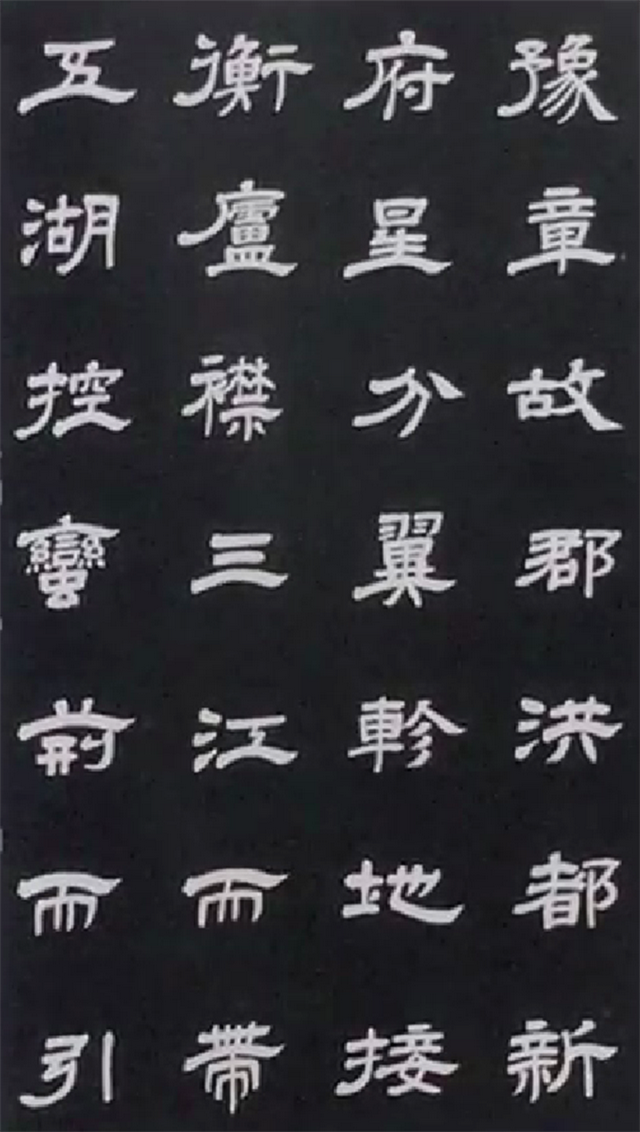 豫章故郡洪都新
府星分翼軫地接
衡廬襟三江而帶
五湖控蠻荊而引